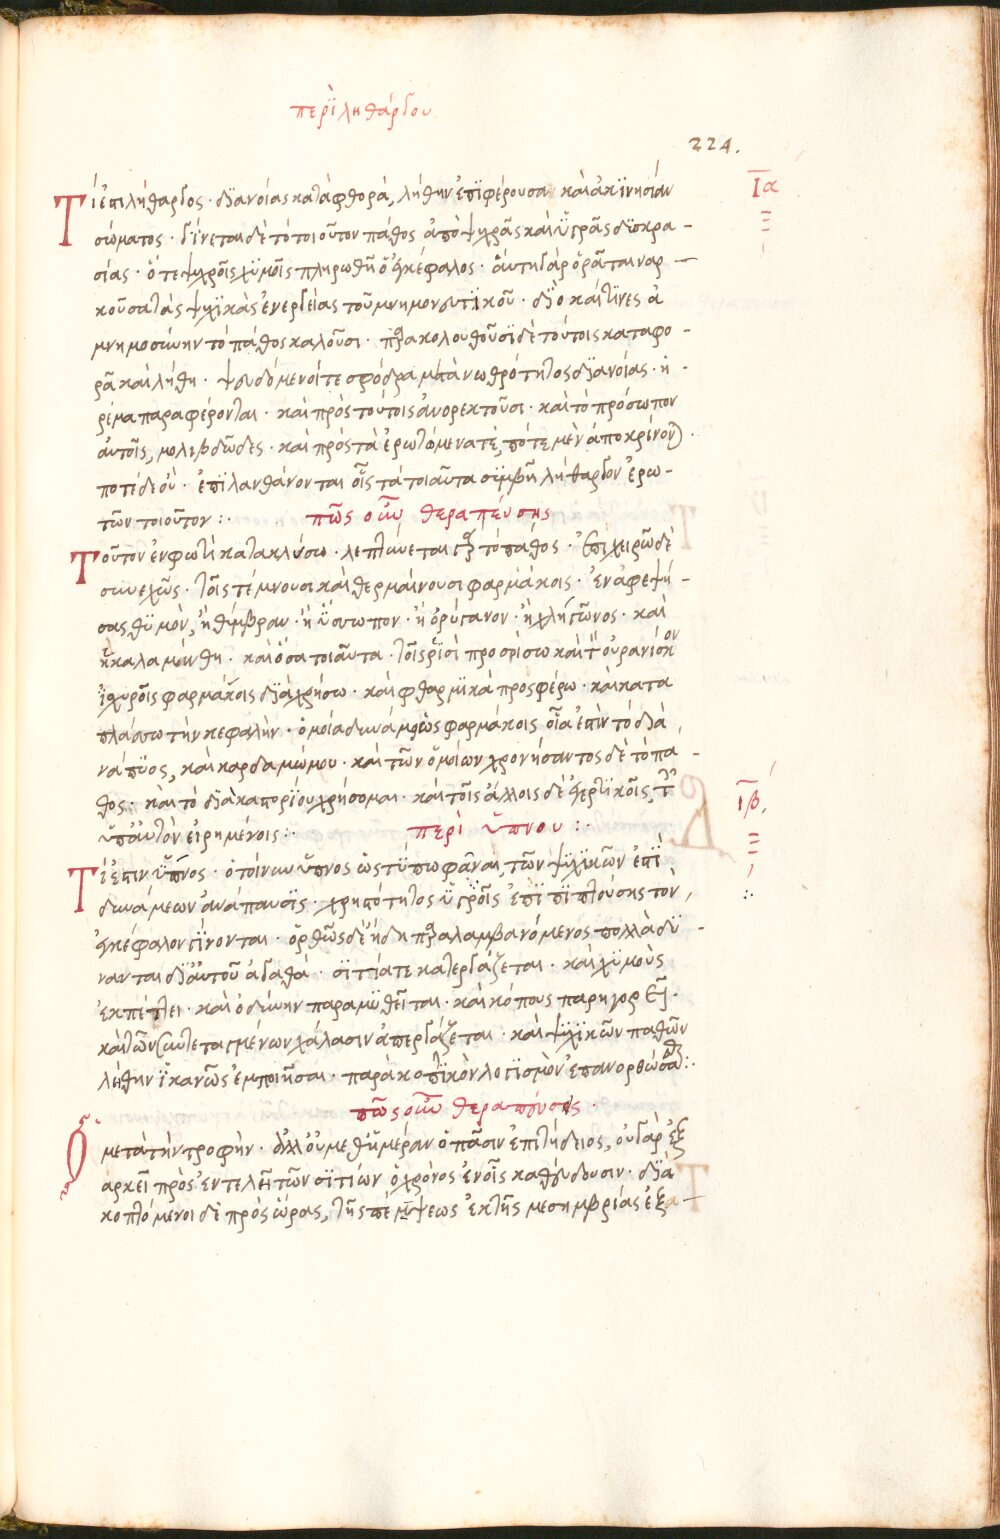 περὶ ληθάργου
224.
Ια
Τί ἐστι λήθαργος · διανοίας καταφθορά, λήθην ἐπιφέρουσα καὶ ἀκινησίαν
σώματος · γίνεται δὲ τὸ τοιοῦτον πάθος ἀπὸ ψυχρᾶς καὶ ὑγρᾶς δυσκρα-
σίας · ὅτε ψυχροῖς χυμοῖς πληρωθῆ ὁ ἐγκέφαλος · αὕτη γὰρ ὁρᾶται ναρ-
κοῦσα τὰς ψυχικὰς ἐνεργείας τοῦ μνημονευτικοῦ · διὸ καί τινες ἀ
μνημοσύνην τὸ πάθος καλοῦσι · παρακολουθοῦσι δὲ τούτοις καταφο-
ρᾶ καὶ λήθη · ψευδόμενοί τε σφόδρα μετὰ νωθρότητος διανοίας · ἠ-
ρέμα παραφέρονται · καὶ πρὸς τούτοις ἀνορεκτοῦσι · καὶ τὸ πρόσωπον
αὐτοῖς, μολιβδῶδες · καὶ πρὸς τὰ ἐρωτώμενα τὲ, ποτὲ μὲν ἀποκρίνονται ·
ποτὲ δὲ οὐ · ἐπιλανθάνονται οἷς τὰ τοιαῦτα συμβῆ λήθαργον ἐρω-
τῶν τοιοῦτον :· πῶς οὖν θεραπεύσης
Τοῦτον ἐν φωτὶ κατακλίνω · λεπτύνεται γὰρ τὸ πάθος · ἐπιχειρῶ δὲ
συνεχῶς · τοῖς τέμνουσι καὶ θερμαίνουσι φαρμάκοις · ἐναφεψή-
σας θύμον, ἢ θύμβραν · ἢ ὕσσωπον · ἢ ὀρύγανον · ἢ γλήχωνος · καὶ
ἢ καλαμίνθη · καὶ ὅσα τοιαῦτα · τοῖς ῥισὶ προσρίσω καὶ τὸν οὐρανίσκον
ἰσχυροῖς φαρμάκοις διαχρήσω · καὶ φθαρμικὰ προσφέρω · καὶ κατα
πλάσσω τὴν κεφαλὴν · ὁμοία δυνάμεως φαρμάκοις οἷα ἐστὶν τὸ διὰ
νάπυος, καὶ καρδαμώμου · καὶ τῶν ὁμοίων χρονήσαντος δὲ τὸ πά-
θος · καὶ τὸ διὰ καστορίου χρήσομαι · καὶ τοῖς ἄλλοις δὲ ἐνερτικοῖς, τ
ὑπ' αὐτὸν εἰρημένοις :· περὶ ὕπνου :·
ιβ.
Τί ἐστιν ὕπνος · ὁ τοίνυν ὕπνος ὡς τύπω φᾶναι, τῶν ψυχικῶν ἐστὶ
δυνάμεων ἀνάπαυσις · χρηστότητος ὑγροῖς ἐπιπιπτούσης τὸν
ἐγκέφαλον γίνονται · ὀρθῶς δὲ ἤδη παραλαμβανόμενος πολλὰ δύ-
νανται δι' αὐτοῦ ἀγαθά · σιτία τε κατεργάζεται · καὶ χυμοὺς
ἐκπέττει · καὶ ὀδύνην παραμυθεῖται · καὶ κόπους παρηγορεῖ ·
καὶ τῶν συντεταγμένων χάλασιν ἀπεργάζεται · καὶ ψυχικῶν παθῶν
λήθην ἱκανῶς ἐμποιῆσαι · παρακοπτικὸν λογισμὸν ἐπανορθώσασθαι :·
πῶς οὖν θεραπεύσης ·
Ὁ μετὰ τὴν τροφὴν · ἀλλ' οὐ μεθ' ἡμέραν ὁ πᾶσιν ἐπιτήδειος, οὐ γὰρ ἐξ
αρκεῖ πρὸς ἐντελῆ τῶν σιτίων ὁ χρόνος ἐν οἷς καθεύδουσιν · δια
κοπτόμενοι δὲ πρὸς ὥρας, τῆς πέμψεως ἐκ τῆς μεσημβρίας ἐξα-